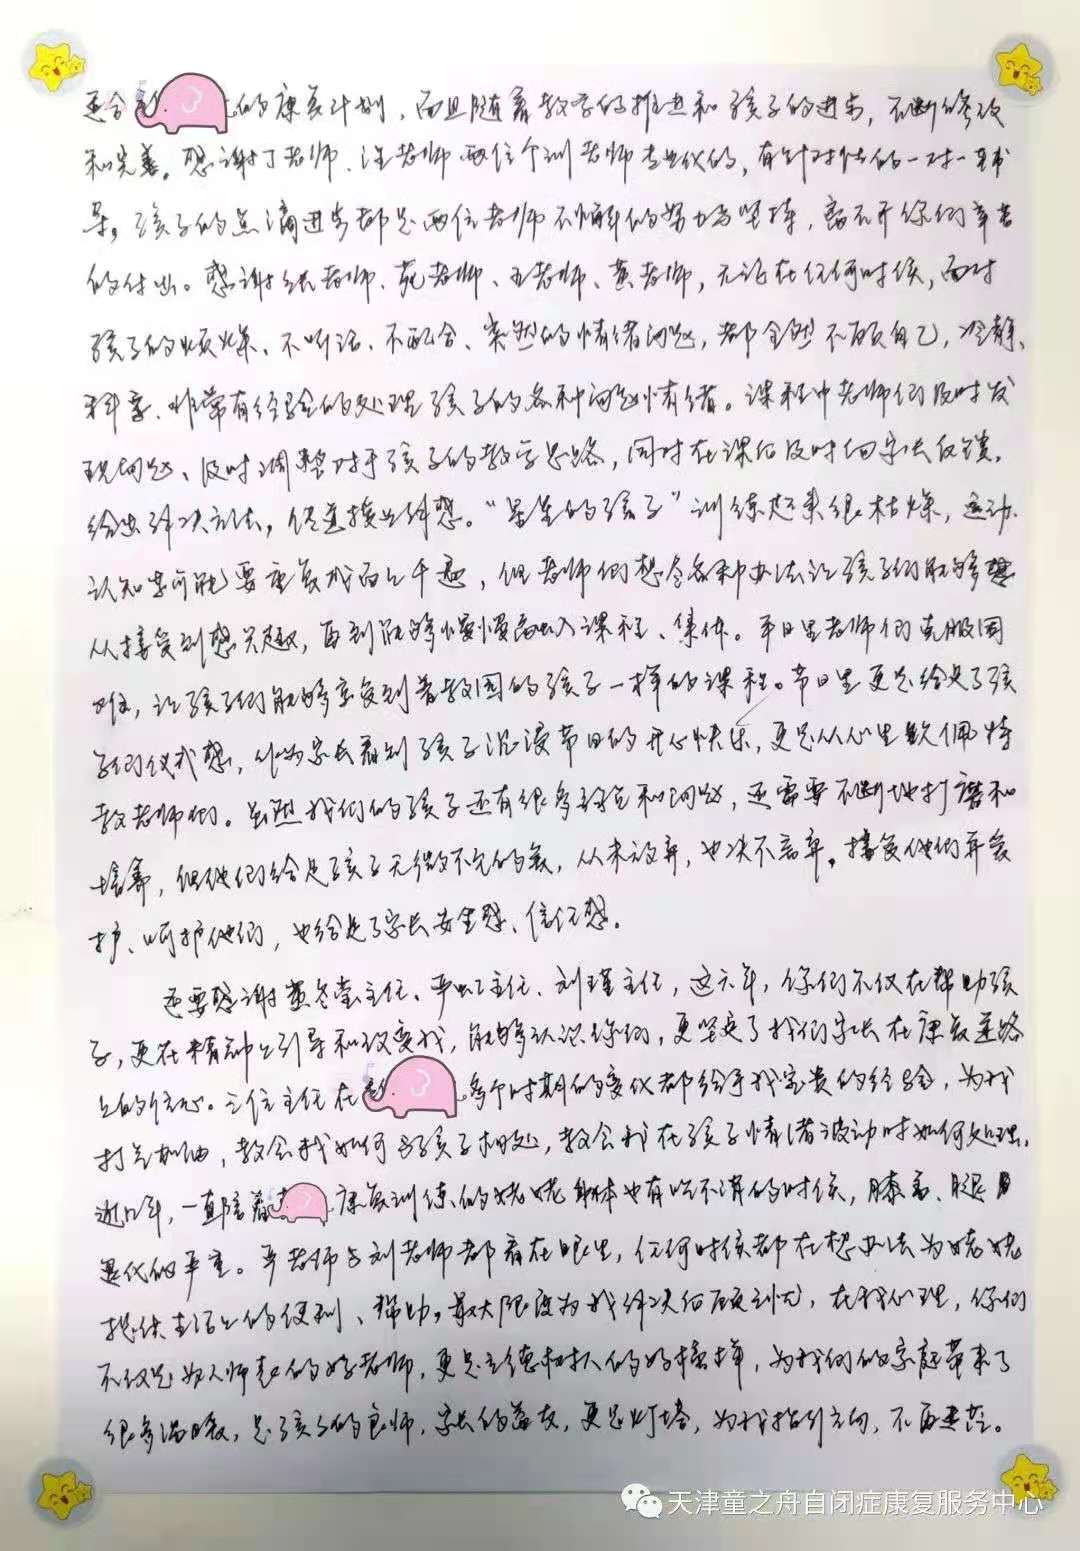 适合的康复计划，而且随着教学的推进和孩子的进步，不断修改
和完善。感谢丁老师、汪老师两位个训老师专业化的，有针对性的一对一辅
导，孩子的点滴进步都是两位老师不懈的努力与坚持，离不开你们辛苦
的付出。感谢张老师、苑老师、王老师、黄老师，无论在任何时候，面对
孩子的烦燥、不听话、不配合、突然的情绪问题，都全然不顾自己，冷静、
科学、非常有经验的处理孩子的各种问题情绪。课程中老师们及时发
现问题、及时调整对于孩子的教学思路，同时在课后及时向家长反馈，
给出解决方法，供连接与纾想。“星星的孩子”训练起来很枯燥，运动、
认知等可能要重复成百上千遍，但老师们想尽各种办法让孩子们能够
从接受到感兴趣，再到能够慢慢融入课程、集体。平日里老师们克服困
难，让孩子们能够享受到普教园的孩子一样的课程。节日里更是给足了孩
子们仪式感，作为家长看到孩子沉浸节日的开心快乐，更是从心里钦佩特
教老师们。虽然我们的孩子还有很多缺点和问题，还需要不断地打磨和
培养，但他们给足孩子无微不至的爱，从未放弃，也决不离弃。接受他们并爱
护、呵护他们，也给足了家长安全感、信任感。
还要感谢黄冬莹主任、平虹主任、刘瑾主任，这六年，你们不仅在帮助孩
子，更在精神上引导和改变我，能够认识你们，更坚定了我们家长在康复道路
上的信心。三位主任在多个时期的变化都给予我宝贵的经验，为我
打气加油，教会我如何与孩子相处，教会我在孩子情绪波动时如何处理。
近几年，一直陪着康复训练的姥姥身体也有吃不消的时候，膝盖、腿
退化的严重。平老师与刘老师都看在眼里，任何时候都在想办法为姥姥
提供生活上的便利、帮助，最大限度为我解决后顾之忧，在我心理，你们
不仅是为人师表的好老师，更是立德树人的好榜样，为我们的家庭带来了
很多温暖，是孩子的良师，家长的益友，更是灯塔，为我指引方向，不再迷茫。
天津童之舟自闭症康复服务中心